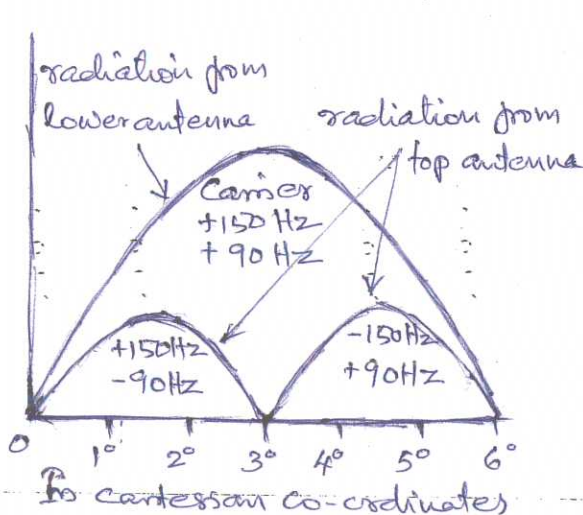 radiation from
lower antenna
radiation from
top antenna
Carrier
+150 Hz
+90 Hz
+150Hz
-90Hz
-150Hz
+90Hz
0 1° 2° 3° 4° 5° 6°
In cartessan co-ordinates